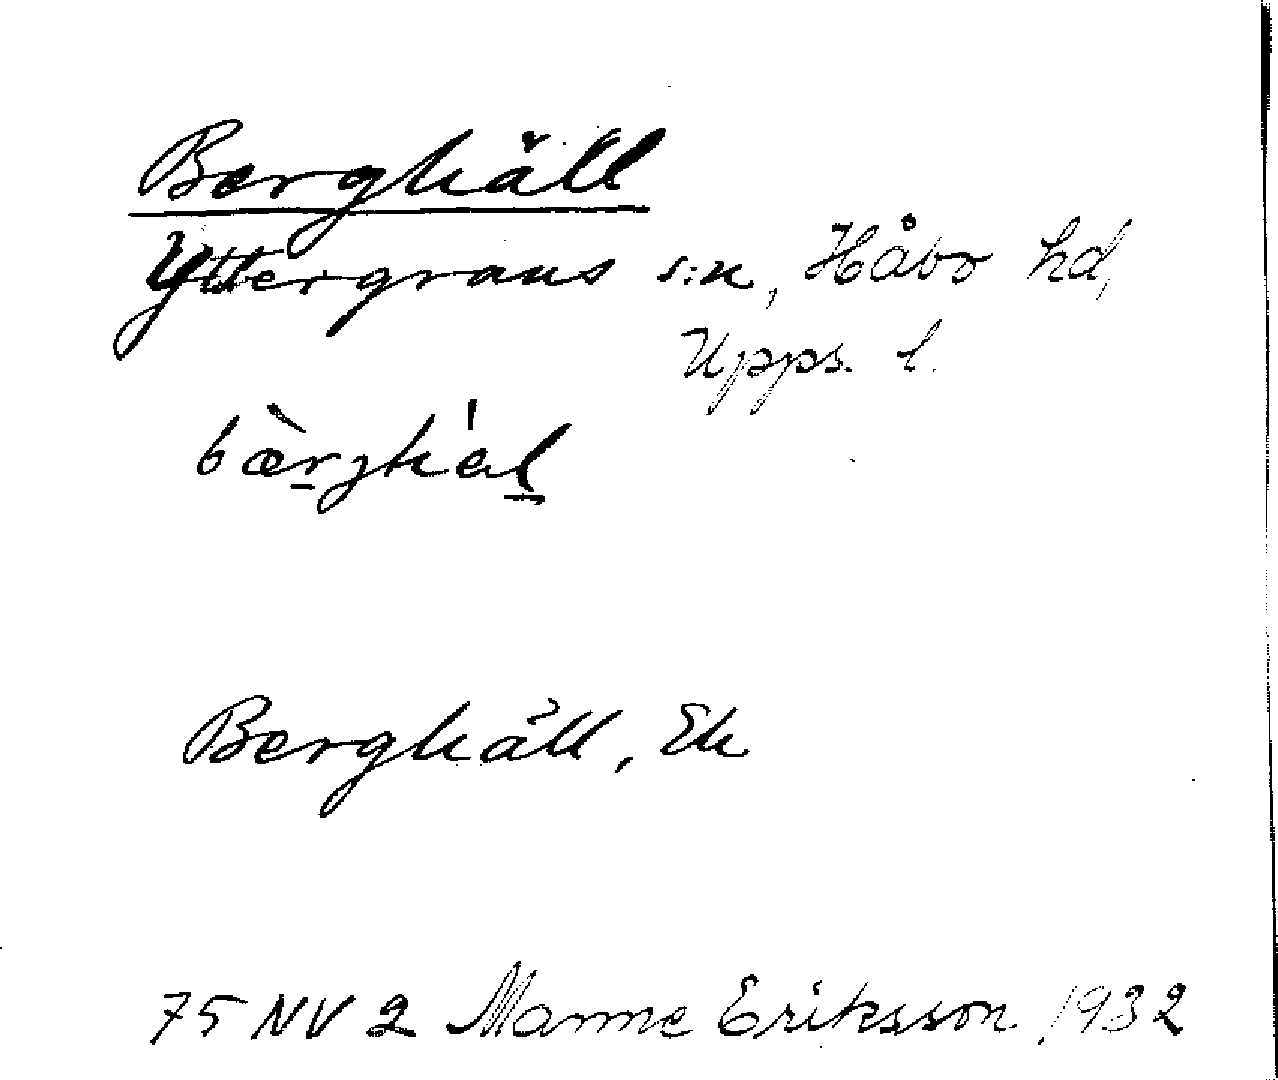 Berghäll
Yttergrans s:n, Håbo hd,
Upps. l.
bæ̀rghäl
Berghäll, Ek
75 NV 2 Manne Eriksson 1932